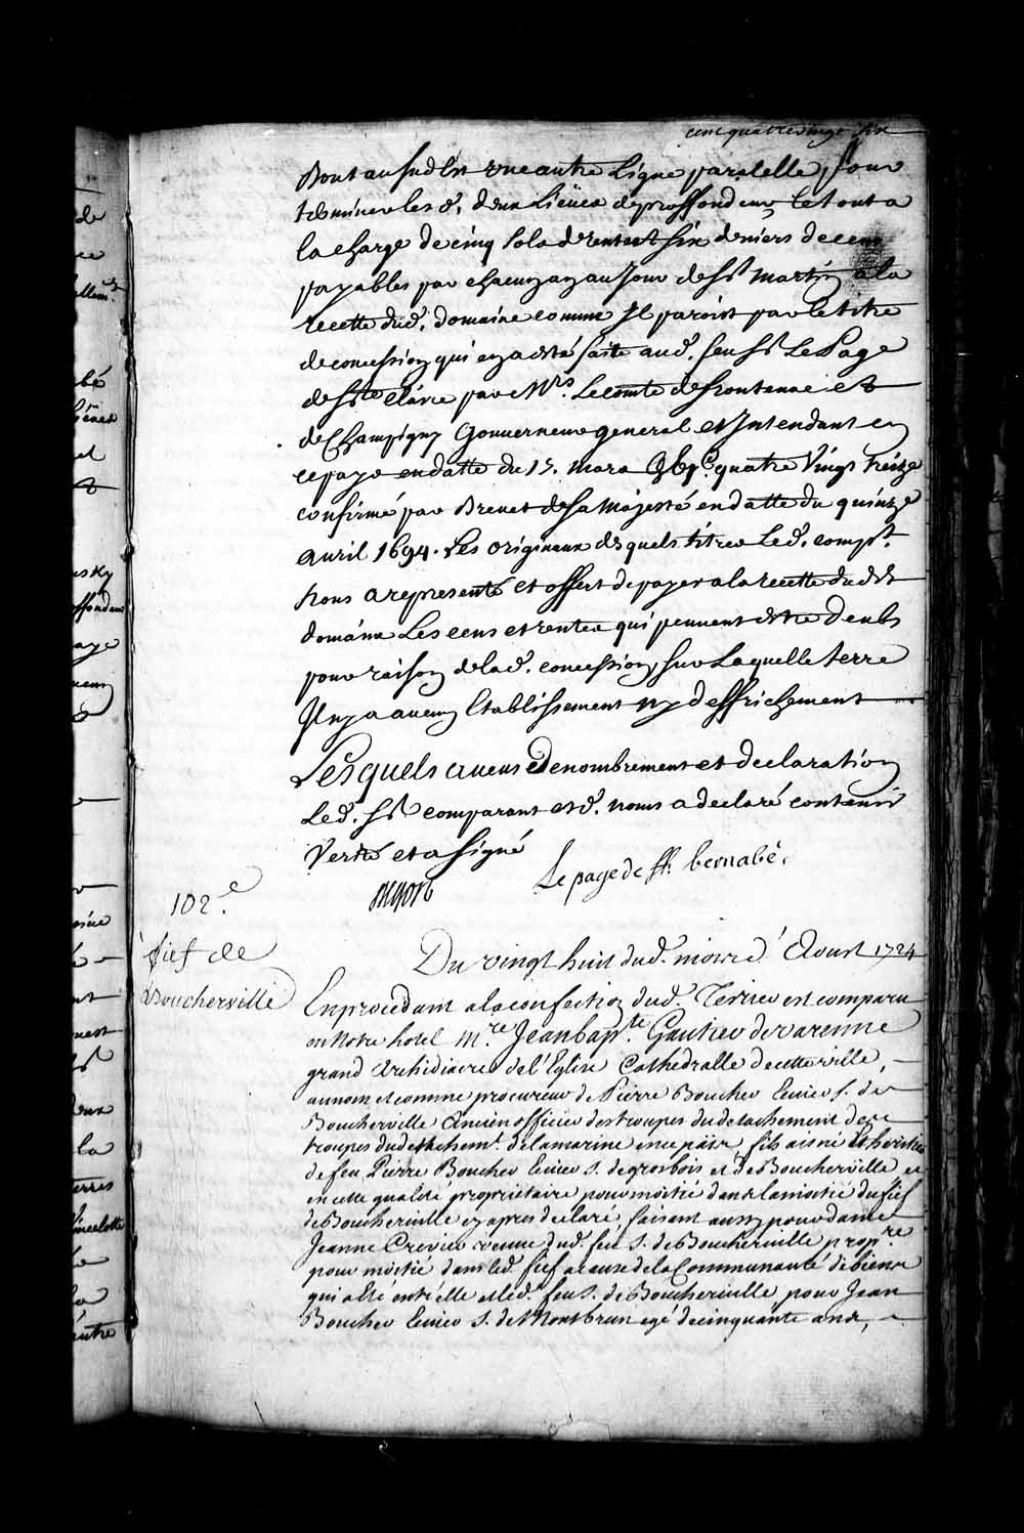 cent quatre vingt six
Bout au sud Est une autre Ligne paralelle pour
terminer les d. deux Lieües de proffondeur, Le tout a
la charge de cinq sols de rente et six deniers de cens
payables par chacun an au Jour de St Martin a la
recette dud. domaine comme Il paroist par le titre
de concession qui en a esté faite aud. feu Sr. LePage
de Ste Claire par Mrs. Lecomte de frontenac et
de Champigny Gouverneur general et Intendant en
ce pays en datte du 15. mars quatre Vingt treize
confirmé par Brevet de Sa Majesté en datte du quinze
avril 1694. Les originaux desquels titres Led. compt.
Nous a representé et offert de payer a la recette dudit
domaine Les cens et rentes qui peuvent estre deubs
pour raison de lad. concession, sur Laquelle terre
Il n'y a aucun Etablissement ny deffrichement
Lesquels aveus et Denombrement et declaration
Led. Sr comparant esd. noms a declaré contenir
Verité et a signé
Begon
Le page de St. bernabé.
102.e
fief de
Boucherville
Du vingt huit dud. mois d'Aoust 1724
En procedant a la confection dud. Terrier est comparu
en Notre hotel M.re Jean bap.te Gautier de varenne
grand Archidiacre de l'Eglise Cathedralle de cette ville,
au nom et comme procureur de Pierre Boucher Ecuier S. de
Boucherville Ancien officier des troupes du detachement des
troupes du detachemt. de la marine en ce païs, fils aisné et heritier
de feu Pierre Boucher Ecuier S. de grosbois et de Boucherville et
en cette qualité proprietaire pour moitié dans la moitié du fief
de Boucherville cy apres declaré, faisant aussy pour dame
Jeanne Crevier veuve dud. feu S. de Boucherville propre.
pour moitié dans led. fief a cause de la Communauté de biens
qui a été entr'elle et led. feu S. de Boucherville, pour Jean
Boucher Ecuier S. de Montbrun agé de cinquante ans,